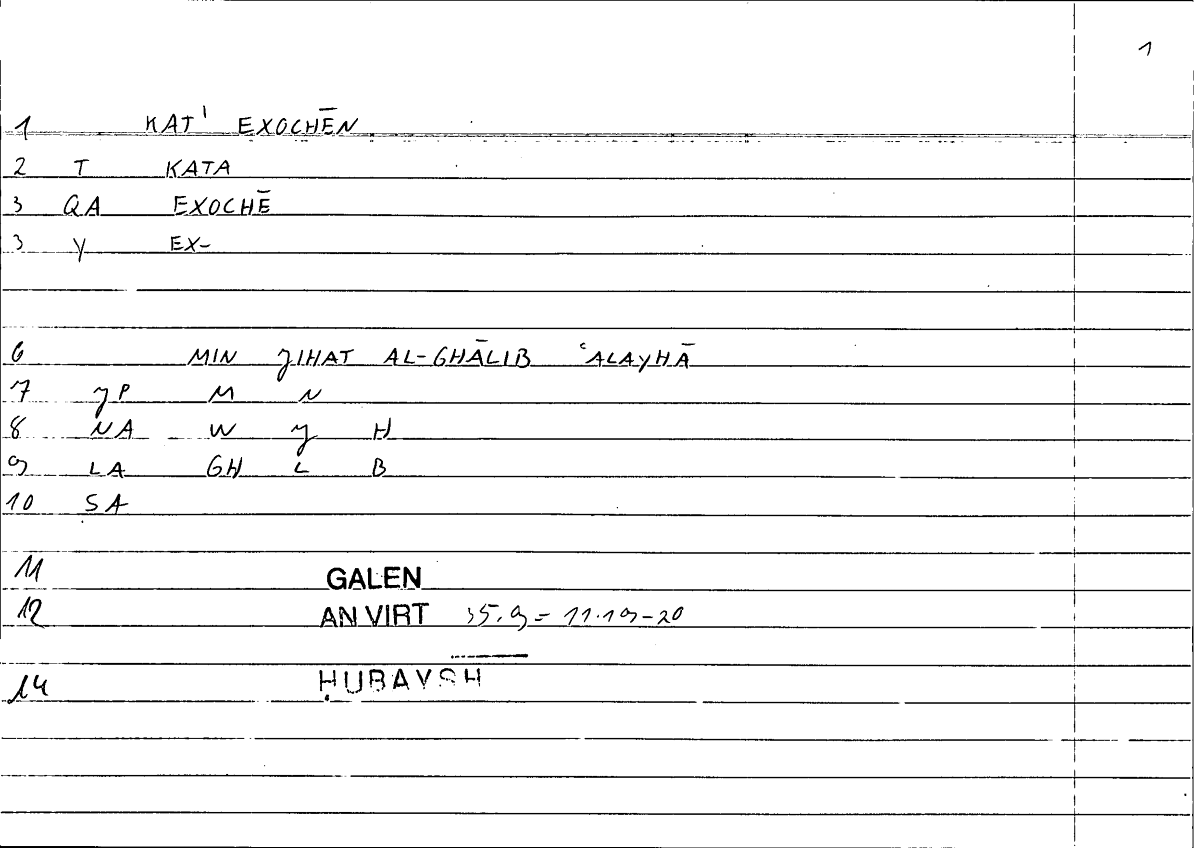 1
1 KAT' EXOCHĒN
2 T KATA
3 QA EXOCHĒ
3 Y EX-
6 MIN JIHAT AL-GHĀLIB ʿALAYHĀ
7 JP M N
8 NA W J H
9 LA GH L B
10 SA
11 GALEN
12 AN VIRT 35.9 = 11.19-20
14 ḤUBAYSH